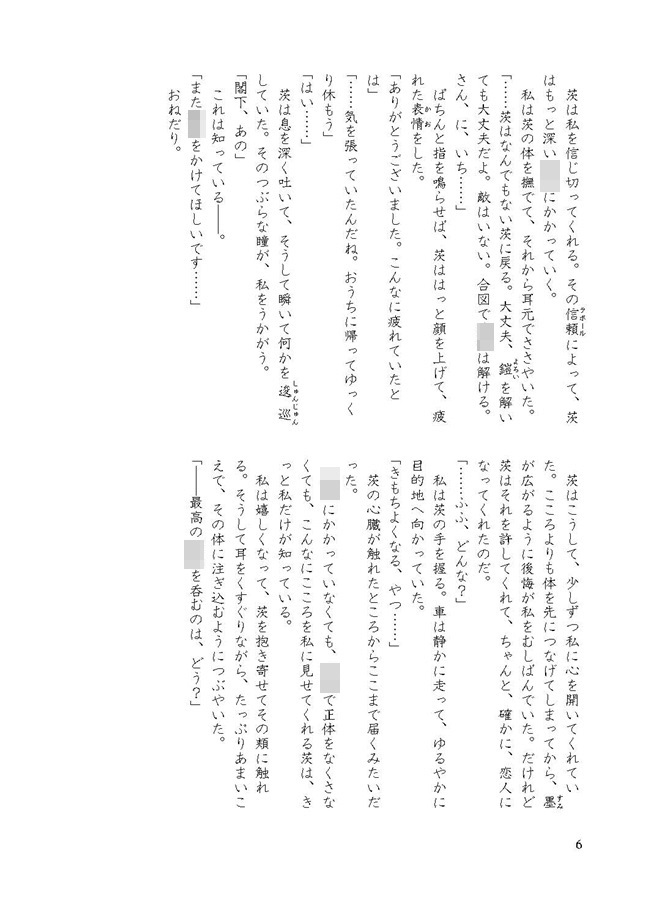 茨は私を信じ切ってくれる。その信頼によって、茨
ラポール
はもっと深い にかかっていく。
私は茨の体を撫でて、それから耳元でささやいた。
「……茨はなんでもない茨に戻る。大丈夫、鎧を解い
よろい
ても大丈夫だよ。敵はいない。合図で は解ける。
さん、に、いち……」
ぱちんと指を鳴らせば、茨ははっと顔を上げて、疲
れた表情をした。
かお
「ありがとうございました。こんなに疲れていたと
は」
「……気を張っていたんだね。おうちに帰ってゆっく
り休もう」
「はい……」
茨は息を深く吐いて、そうして瞬いて何かを逡巡
しゅんじゅん
していた。そのつぶらな瞳が、私をうかがう。
「閣下、あの」
これは知っている――。
「また をかけてほしいです……」
おねだり。
茨はこうして、少しずつ私に心を開いてくれてい
た。こころよりも体を先につなげてしまってから、墨
すみ
が広がるように後悔が私をむしばんでいた。だけれど
茨はそれを許してくれて、ちゃんと、確かに、恋人に
なってくれたのだ。
「……ふふ、どんな？」
私は茨の手を握る。車は静かに走って、ゆるやかに
目的地へ向かっていた。
「きもちよくなる、やつ……」
茨の心臓が触れたところからここまで届くみたいだ
った。
にかかっていなくても、 で正体をなくさな
くても、こんなにこころを私に見せてくれる茨は、き
っと私だけが知っている。
私は嬉しくなって、茨を抱き寄せてその頬に触れ
る。そうして耳をくすぐりながら、たっぷりあまいこ
えで、その体に注ぎ込むようにつぶやいた。
「――最高の を呑むのは、どう？」
6